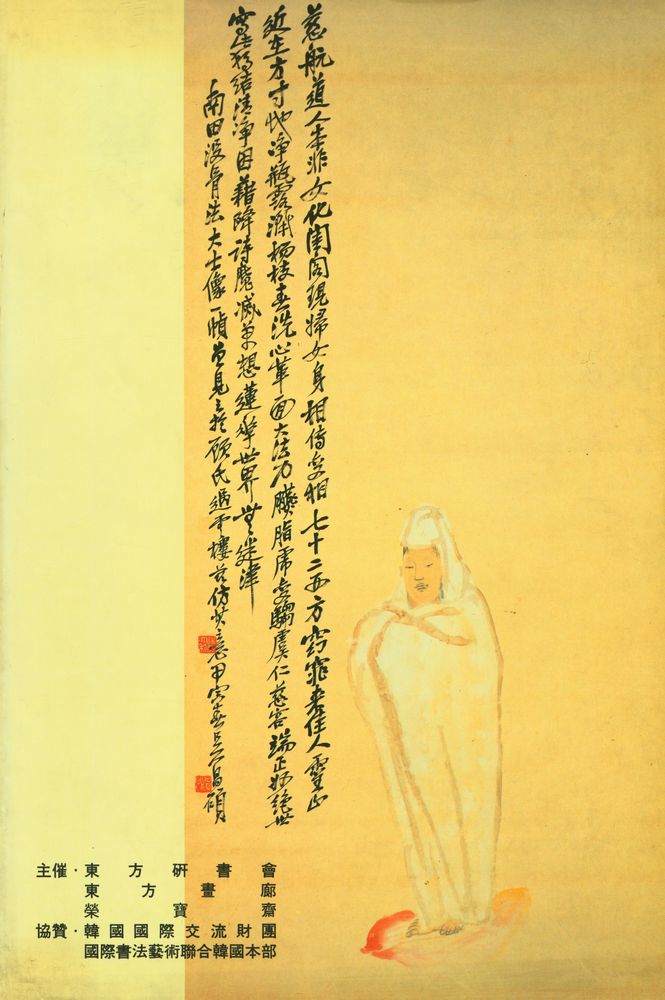 慈航道人本非女化閨閣現婦女身相傳變相七十二西方窈窕來佳人靈山
近在方寸地淨瓶露潤楊枝春洗心革面大法力臙脂虎變騶虞仁慈容端正好絕世
寫此猶結清淨因藉降詩魔滅萬想蓮華世界無迷津
南田沒骨法大士像一幀曾見之於顧氏過雲樓茲仿其意甲寅春吳昌碩
主催·東方硏書會
東方畫廊
榮寶齋
協贊·韓國國際交流財團
國際書法藝術聯合韓國本部